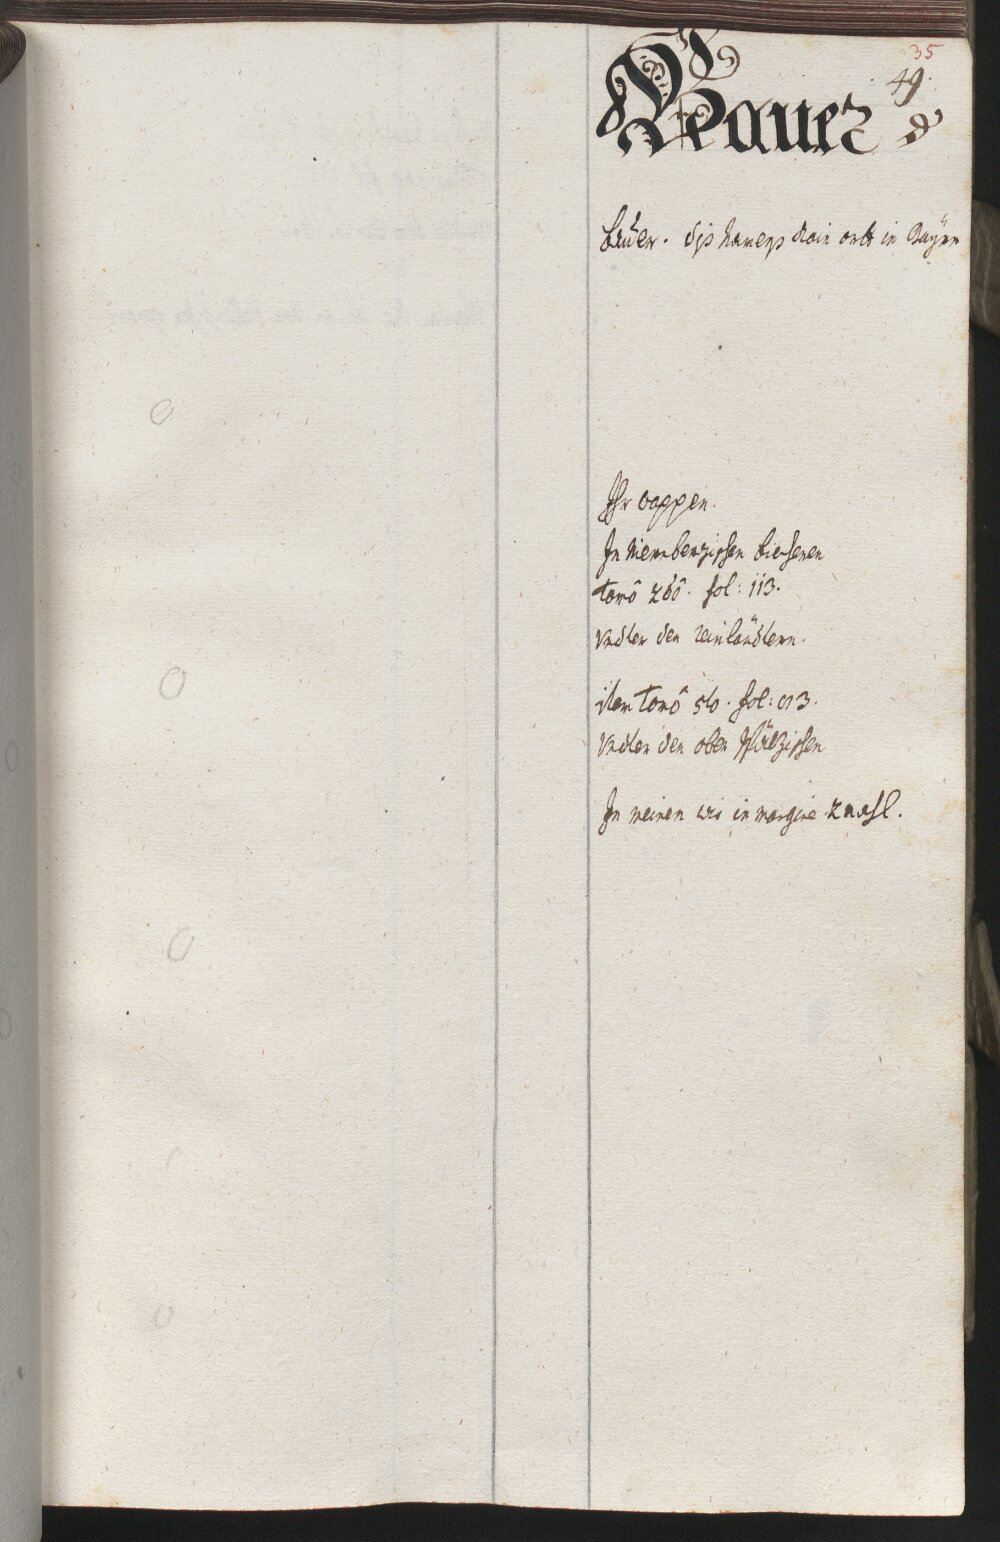 35
49.
Pauer
bauer. dis namens kain ortt in Bayrn
Ihr wappen.
In Niernbergischen biechern
tomô 2dô. fol: 113.
vndter den rainländern.
item tomô 5to. fol: 93.
vndter den ober Pfälzischen
In meinen wie in margine zusehl.